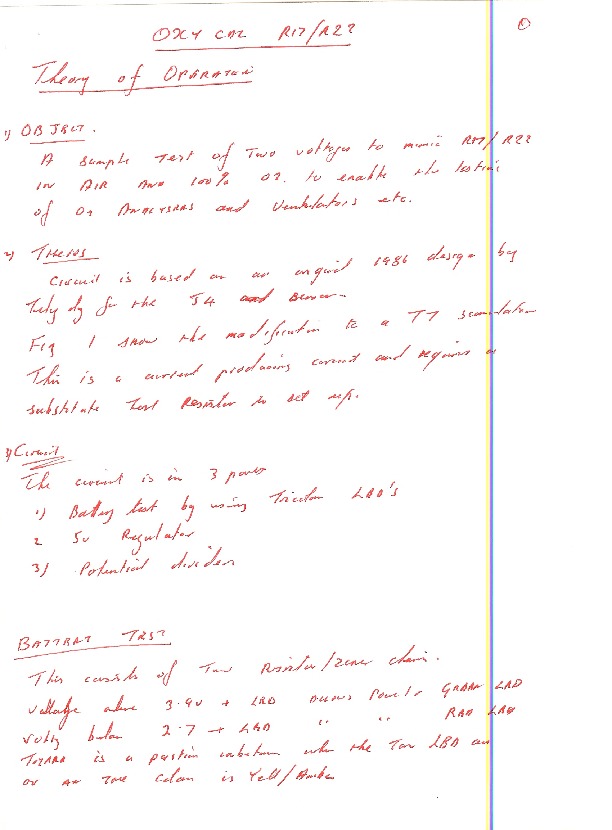 ①
OXY CAL R17/R22
Theory of OPERATION
1) OBJECT.
A sample Test of Two voltages to mimic R17/R22
IN AIR AND 100% O2. to enable the testing
of O2 ANALYSERS and Ventilators etc.
2) THESIS
Circuit is based on an original 1986 design by
for the J4 and
Fig 1 show the modification to a T7 simulation
This is a current producing circuit and requires a
substitute Test Resistor to set up.
3) Circuit
The circuit is in 3 parts
1) Battery test by using Tricolour LED's
2 5v Regulator
3) Potential dividers
BATTERY TEST
This consists of Two Resistor/zener chains.
Voltage above 3.9v + LED allows Power to GREEN LED
volts below 2.7 + LED " " RED LED
THERE is a position inbetween when the Two LED are
on AN THE Colour is Yell/Amber